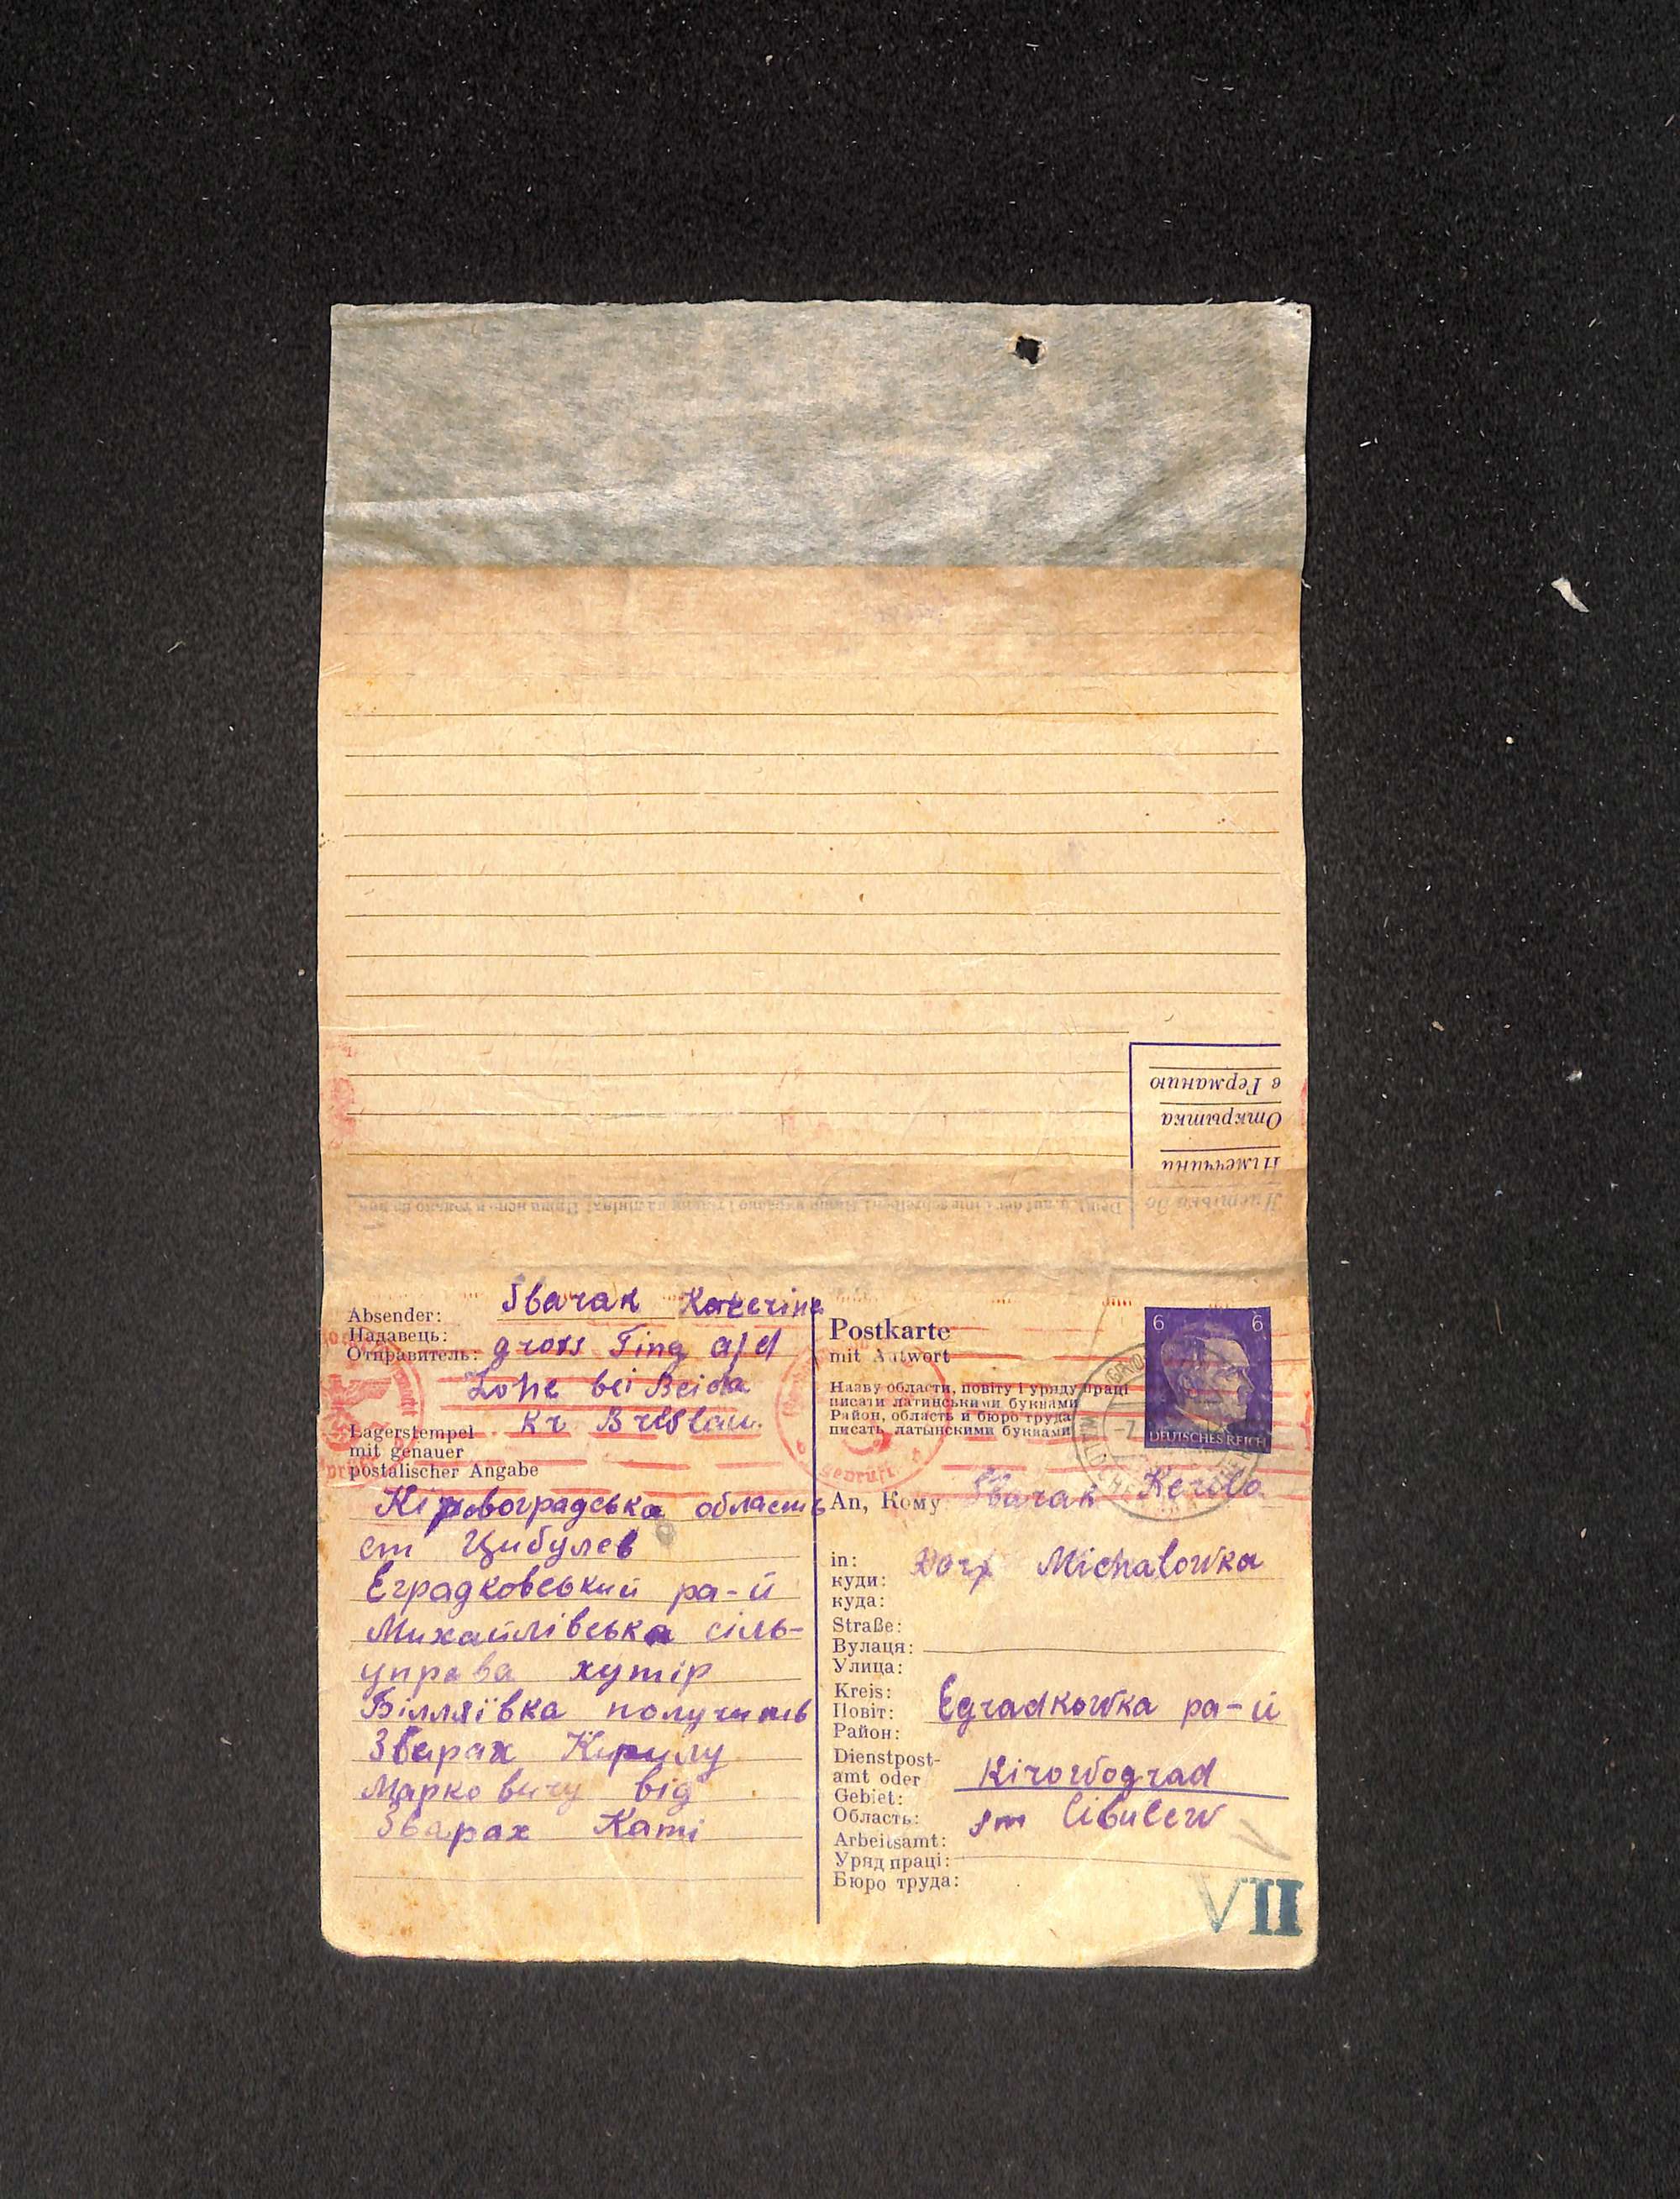 в Германию
Открытка
Німеччини
Листівка до
Absender: Sbarak Katerina
Надавець:
Отправитель: gross Ting a/d
Lohe bei Beida
Kr Breslau.
Lagerstempel
mit genauer
postalischer Angabe
Кіровоградська область
ст Цибулев
Еградковський ра-й
Михайлівська сіль-
управа хутір
Білляївка получить
Зварах Кирилу
Марковичу від
Зварах Каті
Postkarte
mit Antwort
Назву области, повіту і уряду праці
писати латинськими буквами
Район, область и бюро труда
писать латынскими буквами
6 6
DEUTSCHES REICH
An, Кому Sbarak Kerila
in: Dorf Michalowka
куди:
куда:
Straße:
Вулаця:
Улица:
Kreis:
Повіт: Egradkowka ра-й
Район:
Dienstpost-
amt oder Kirowograd
Gebiet:
Область: sm Cibulew
Arbeitsamt:
Уряд праці:
Бюро труда:
VII